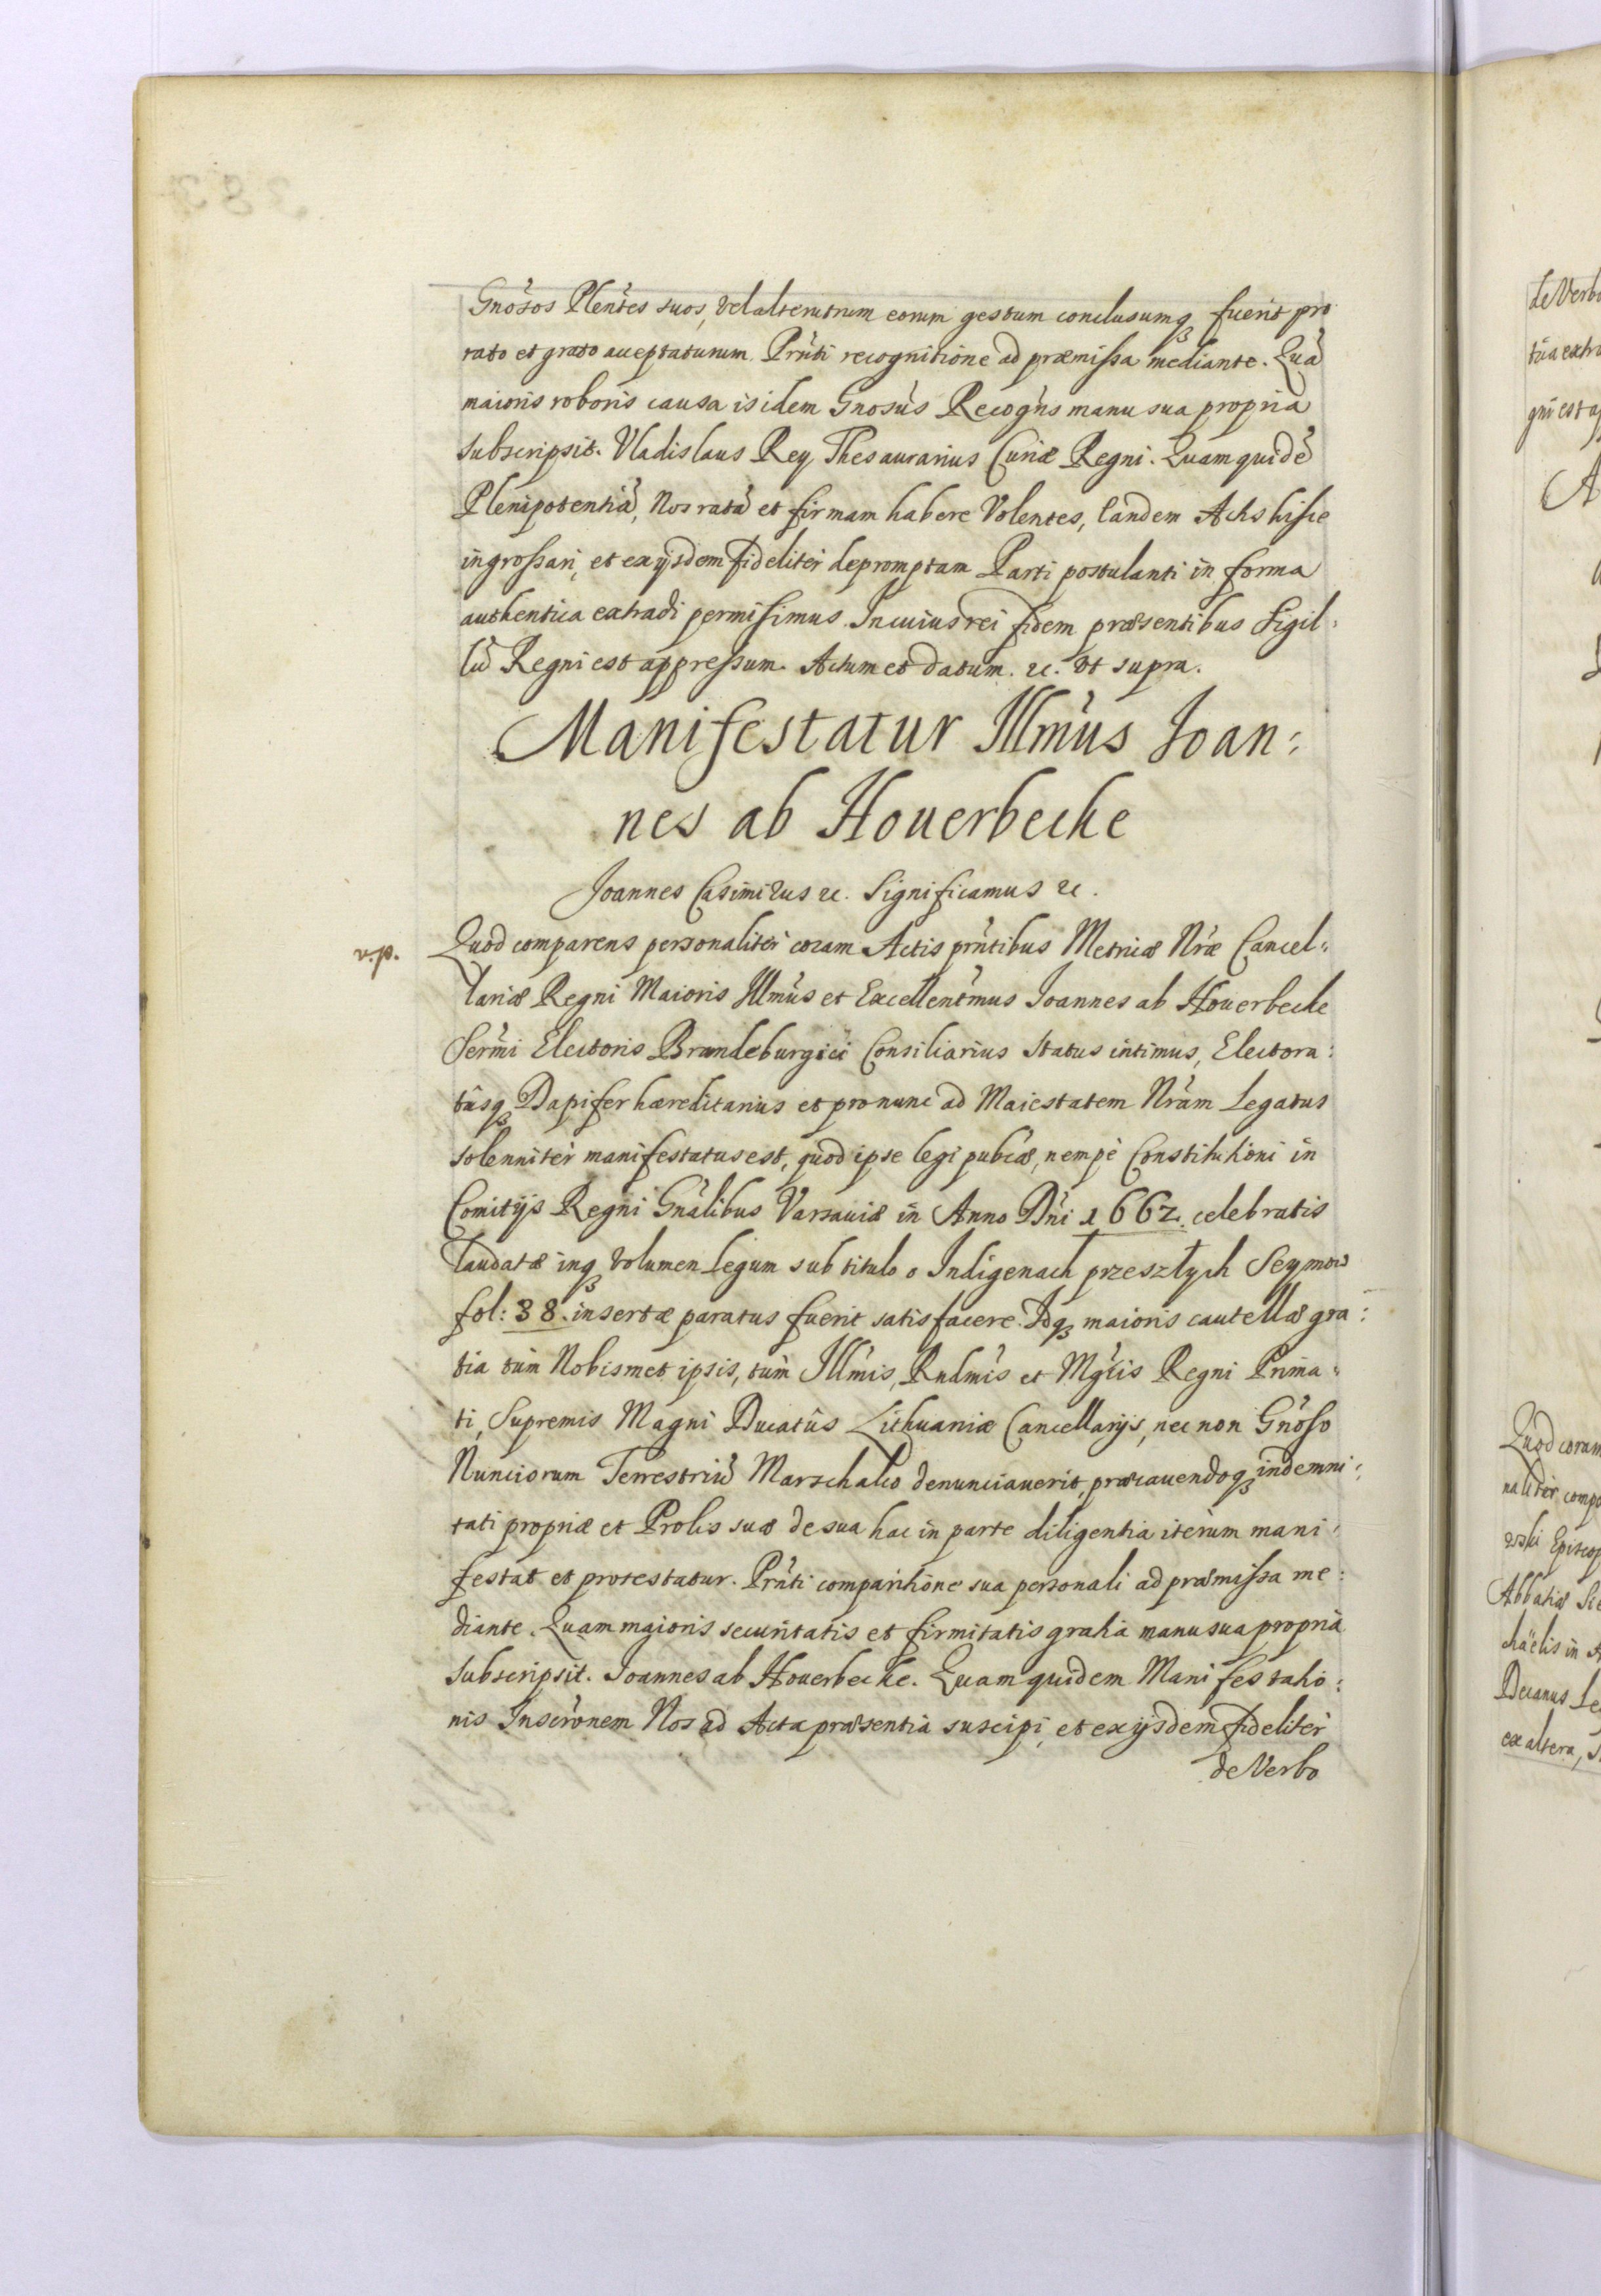 Gnõsos Plentes suos, vel alterutrum eorum gestum conclusumq3 fuerit pro
rato et grato acceptaturum. Prnti recognitione ad præmissa mediante. Quã
maioris roboris causa is idem Gnosus Recogns manu sua propria
subscripsit. Vladislaus Rey Thesaurarius Curiæ Regni. Quam quidẽ
Plenipotentiã, Nos ratã et firmam habere Volentes, eandem Actis hisce
ingrossari, et ex ijsdem fideliter depromptam Parti postulanti in forma
authentica extradi permisimus. In cuius rei fidem præsentibus Sigil:
lũ Regni est appressum. Actum et datum. &c. ut supra.
Manifestatur Illmus Joan:
nes ab Houerbecke
Joannes Casimirus &c. Significamus &c.
v.p. Quod comparens personaliter coram Actis prntibus Metricæ Nræ Cancel:
lariæ Regni Maioris Illmus et Excellentmus Joannes ab Houerbecke
Sermi Electoris Brandeburgici Consiliarius Status intimus, Electora:
tûsq3 Dapifer hæreditarius et pro nunc ad Maiestatem Nram Legatus
solenniter manifestatus est, quod ipse legi pubcæ, nempè Constitutioni in
Comitijs Regni Gnalibus Varsauiæ in Anno Dni 1662. celebratis
laudatæ inq3 Volumen Legum sub titulo o Indigenach przeszłych Seymow
fol: 38. insertæ paratus fuerit satisfacere. Idq3 maioris cautellæ gra:
tia tùm Nobismet ipsis, tùm Illmis, Rndmis et Mgcis Regni Prima:
ti, Supremis Magni Ducatûs Lithuaniæ Cancellarijs, nec non Gnoso
Nunciorum Terrestriũ Marschalco denunciauerit, præcauendoq3 indemni:
tati propriæ et Prolis suæ de sua hac in parte diligentia iterum mani:
festat et protestatur. Prnti comparitione sua personali ad præmissa me:
diante. Quam majoris securitatis et firmitatis gratia manu sua propria
subscripsit. Joannes ab Houerbecke. Quam quidem Manifestatio:
nis Inscronem Nos ad Acta præsentia suscipi, et ex ijsdem fideliter
de Verbo